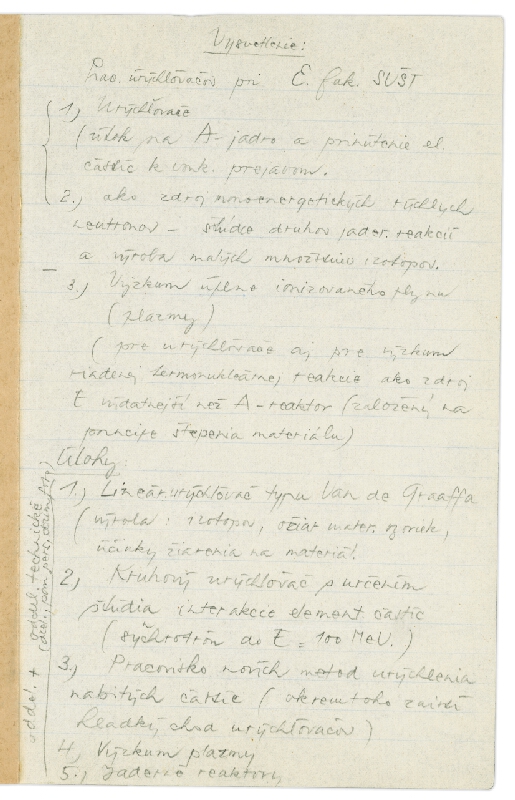 Vysvetlenie:
Prac. urýchľovačov pri E. fak. SVŠT
1.) Urýchľovače
(útok na A-jadro a prinútenie el.
častíc k vonk. prejavom.
2.) ako zdroj monoenergetických rýchlych
neutronov – štúdie druhov jader. reakcií
a výroba malých množstiev izotopov.
3.) Výzkum úplne ionizovaného plynu
(plazmy)
(pre urýchľovače aj pre výzkum
riadenej termonukleárnej reakcie ako zdroj
E výdatnejší než A-reaktor (založený na
principe štepenia materiálu)
Úlohy:
1.) Lineár. urýchľovač typu Van de Graaffa
(výroba: izotopov, ožiar. mater.
účinky žiarenia na materiál.
2.) Kruhový urýchľovač s určením
štúdia interakcie element. častíc
(sychrotrón do E = 100 MeV.)
3.) Pracovisko nových metod urýchlenia
nabitých častíc (okrem toho
urýchľovačov)
4.) Výzkum plazmy
5.) Jaderné reaktory
oddel. + oddel. technické